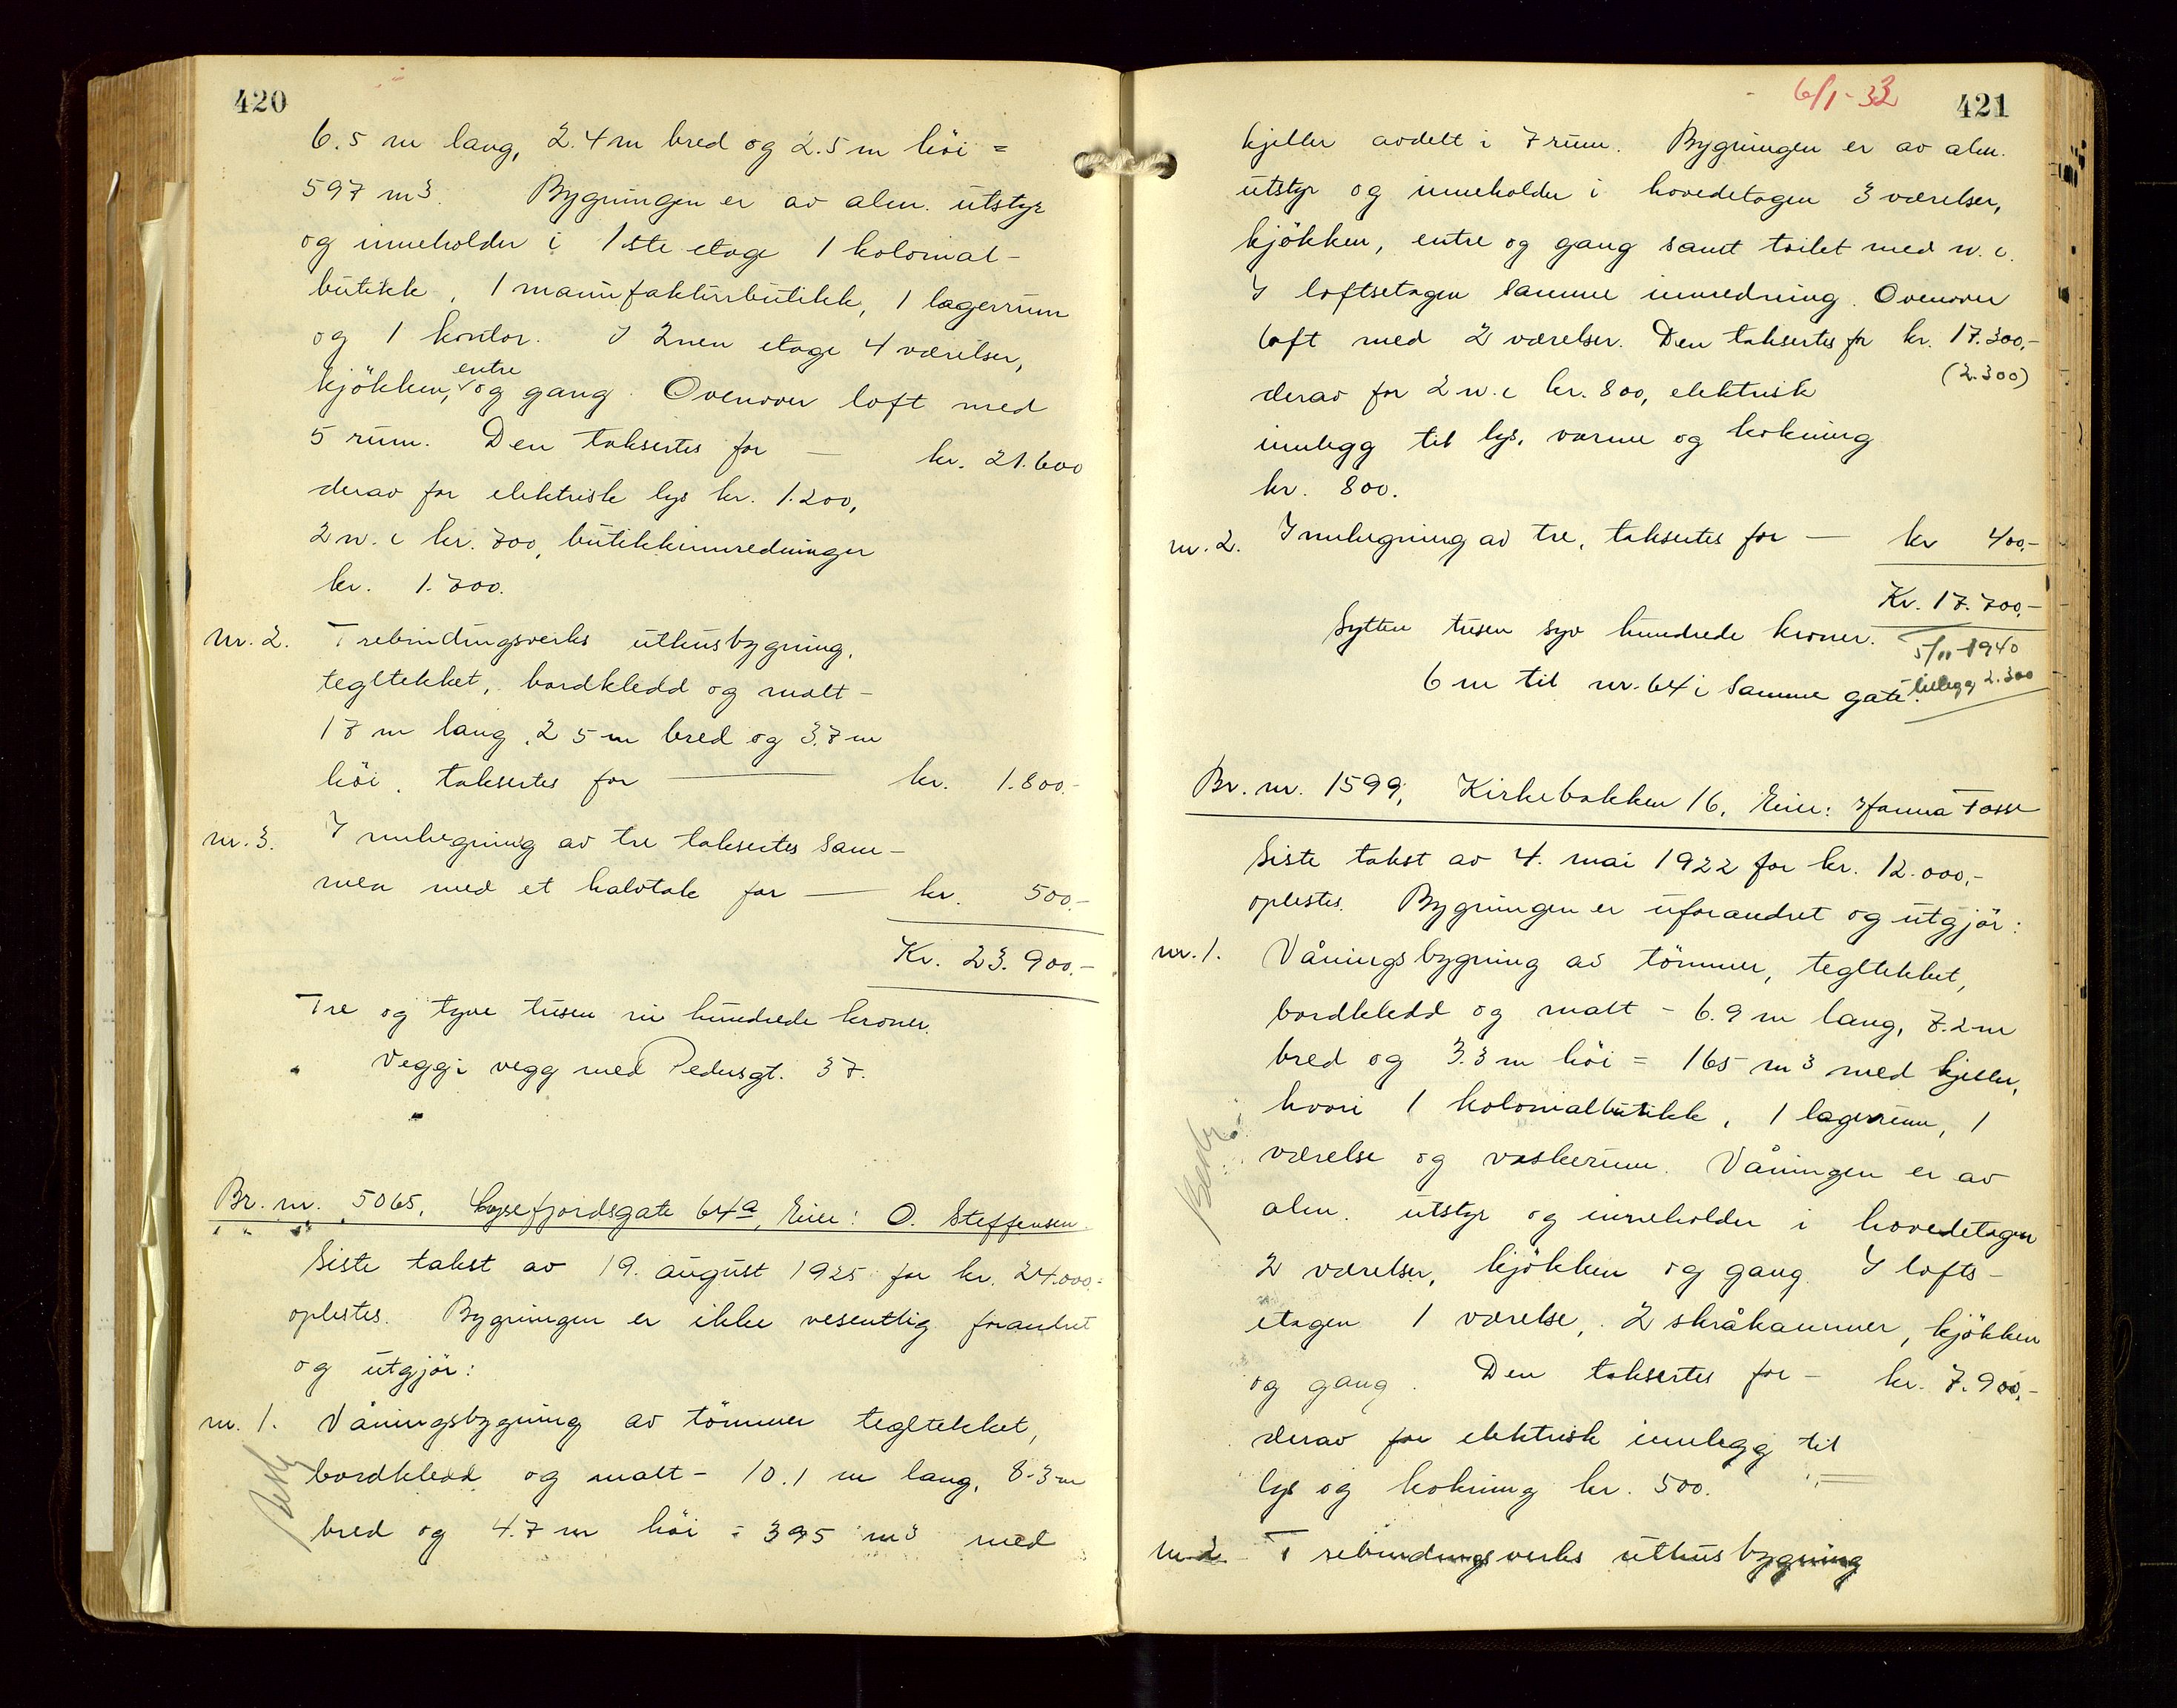 420
6.5 m lang, 2.4 m bred og 2.5 m höi =
597 m3. Bygningen er av alm. utstyr
og inneholder i 1ste etage 1 kolonial-
butikk, 1 manufakturbutikk, 1 lagerrum
og 1 kontor. I 2nen etage 4 værelser,
entre
kjökken, og gang. Ovenover loft med
5 rum. Den taksertes for — kr. 21.600
derav for elektrisk lys kr. 1.200,
2 w.c kr. 700, butikkinnredninger
kr. 1.700.
nr. 2. Trebindingsverks uthusbygning,
tegltekket, bordkledd og malt -
17 m lang, 2 5 m bred og 3.7 m
höi, taksertes for — kr. 1.800.-
nr. 3. Innhegning av tre taksertes sam-
men med et halvtak for — kr. 500.-
Kr. 23.900.-
Tre og tyve tusen ni hundrede kroner.
Vegg i vegg med Pedersgt. 37.
Br. nr. 5065, Lysefjordsgate 64a, Eier: O. Steffensen
Siste takst av 19. august 1925 for kr. 24.000.-
oplestes. Bygningen er ikke vesentlig forandret
og utgjör:
nr. 1. Våningsbygning av tömmer tegltekket,
bordkledd og malt - 10.1 m lang, 8.3 m
bred og 4.7 m höi = 395 m3 med
6/1-33
421
kjeller avdelt i 7 rum. Bygningen er av alm.
utstyr og inneholder i hovedetagen 3 værelser,
kjökken, entre og gang samt toilet med w.c.
I loftsetagen samme innredning. Ovenover
loft med 2 værelser. Den taksertes for kr. 17.300.-
(2.300)
derav for 2 w.c kr. 800, elektrisk
innlegg til lys, varme og kokning
kr. 800.
nr. 2. Innhegning av tre, taksertes for — kr 400.-
Kr. 17.700.-
Sytten tusen syv hundrede kroner.
5/11-1940
6 m til nr. 64 i samme gate.
tillegg 2.300
Br. nr. 1599, Kirkebakken 16, Eier: Hanna Fosse
Siste takst av 4. mai 1922 for kr. 12.000.-
oplestes. Bygningen er uforandret og utgjör:
nr. 1. Våningsbygning av tömmer, tegltekket,
bordkledd og malt - 6.9 m lang, 7.2 m
bred og 3.3 m höi = 165 m3 med kjeller,
hvori 1 kolonialbutikk, 1 lagerrum, 1
værelse og vaskerum. Våningen er av
alm. utstyr og inneholder i hovedetagen
2 værelser, kjökken og gang. I lofts-
etagen 1 værelse, 2 skråkammer, kjökken
og gang. Den taksertes for - kr. 7.900.-
derav for elektrisk innlegg til
lys og kokning kr. 500.
nr. 2. Trebindingsverks uthusbygning